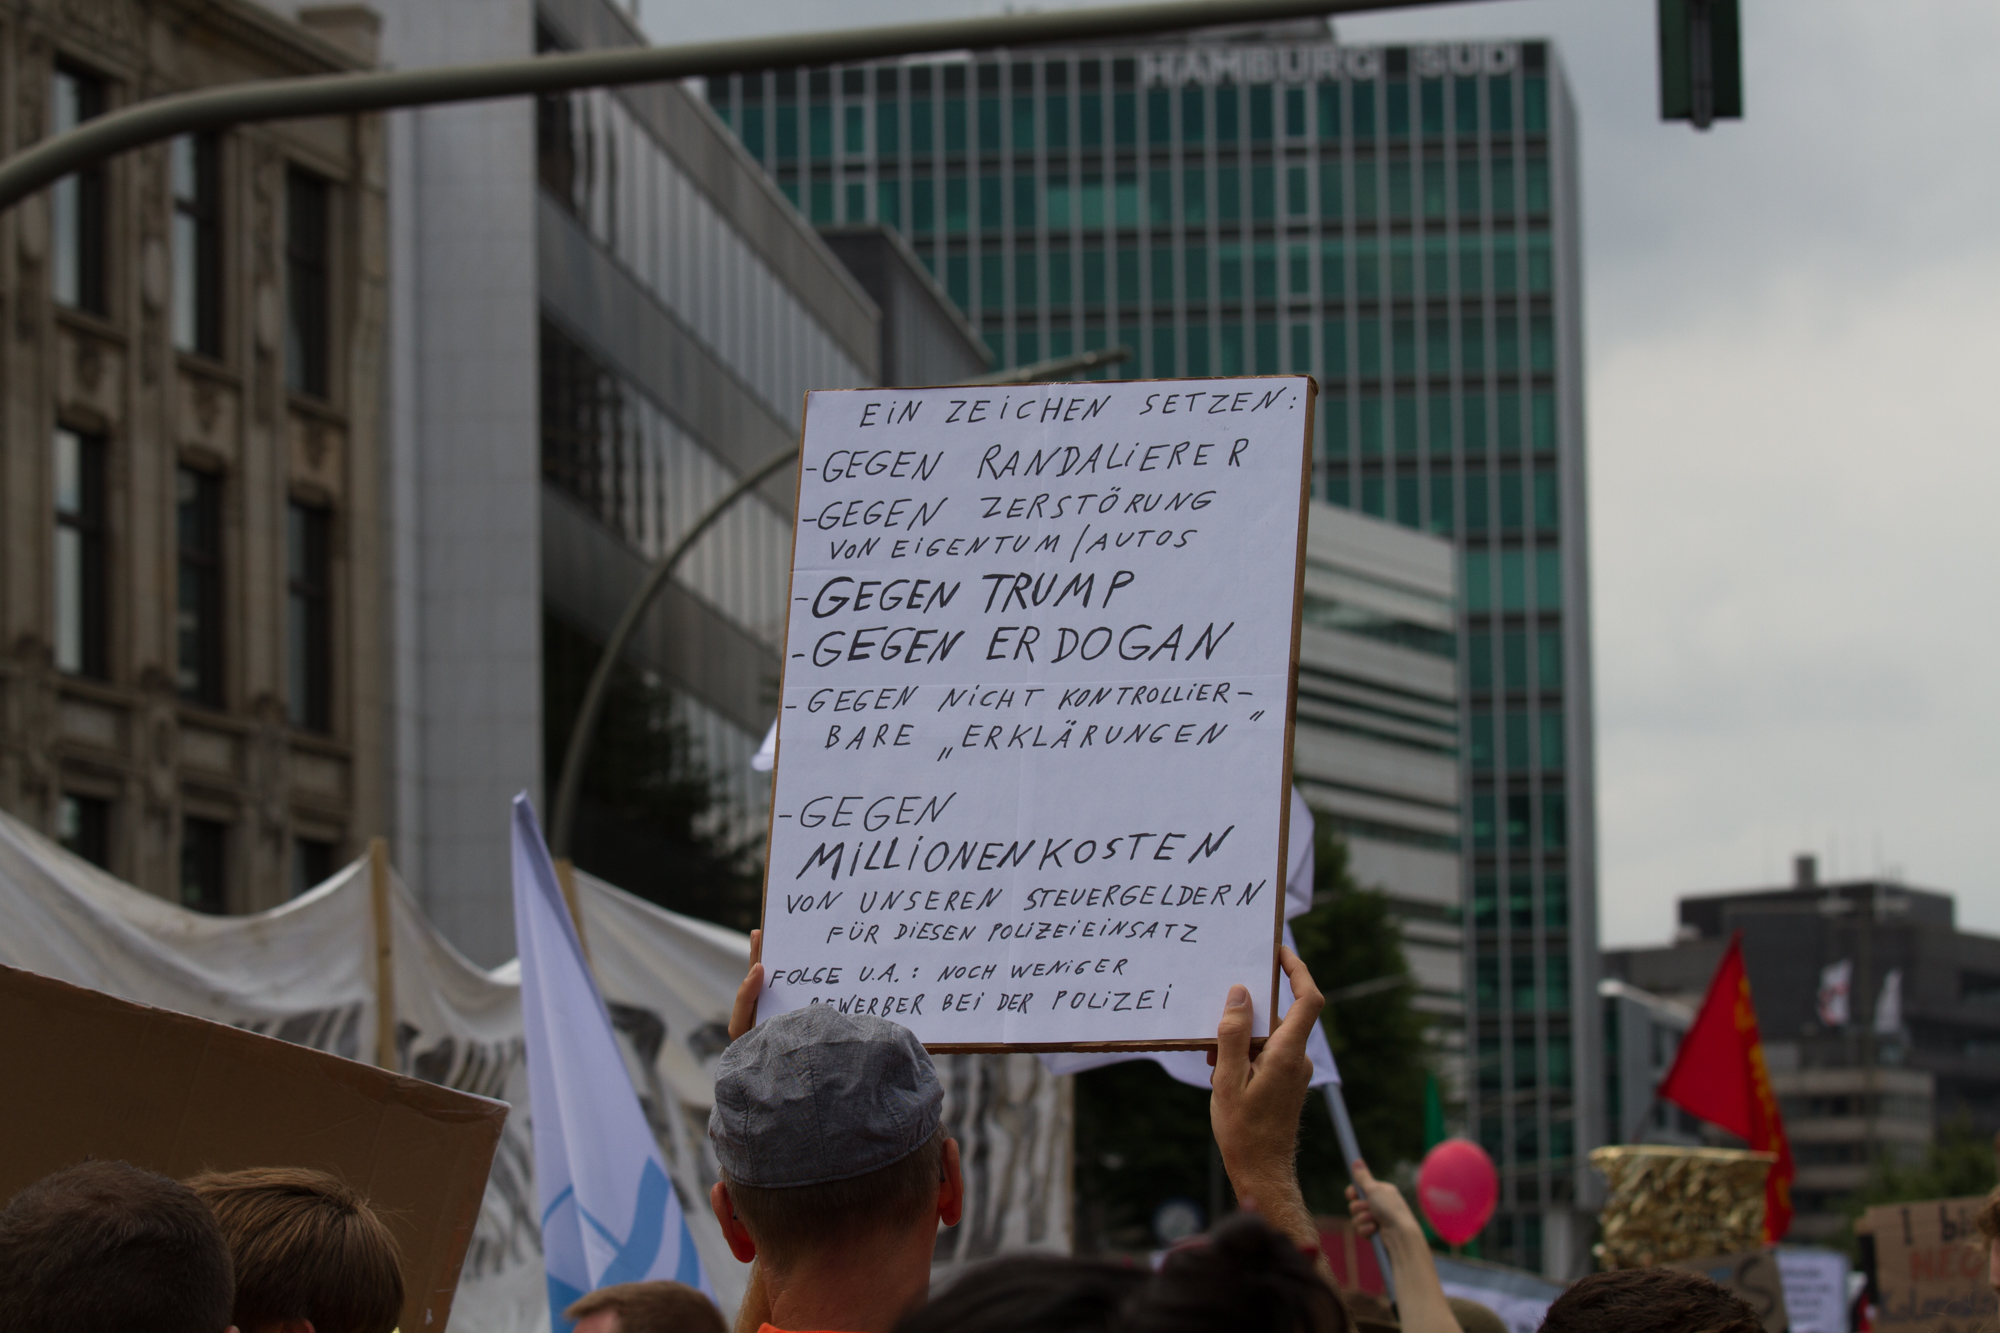 HAMBURG SÜD
EIN ZEICHEN SETZEN:
-GEGEN RANDALIERER
-GEGEN ZERSTÖRUNG
VON EIGENTUM/AUTOS
-GEGEN TRUMP
-GEGEN ERDOGAN
-GEGEN NICHT KONTROLLIER-
BARE „ERKLÄRUNGEN"
-GEGEN
MILLIONENKOSTEN
VON UNSEREN STEUERGELDERN
FÜR DIESEN POLIZEIEINSATZ
FOLGE U.A.: NOCH WENIGER
BEWERBER BEI DER POLIZEI
I